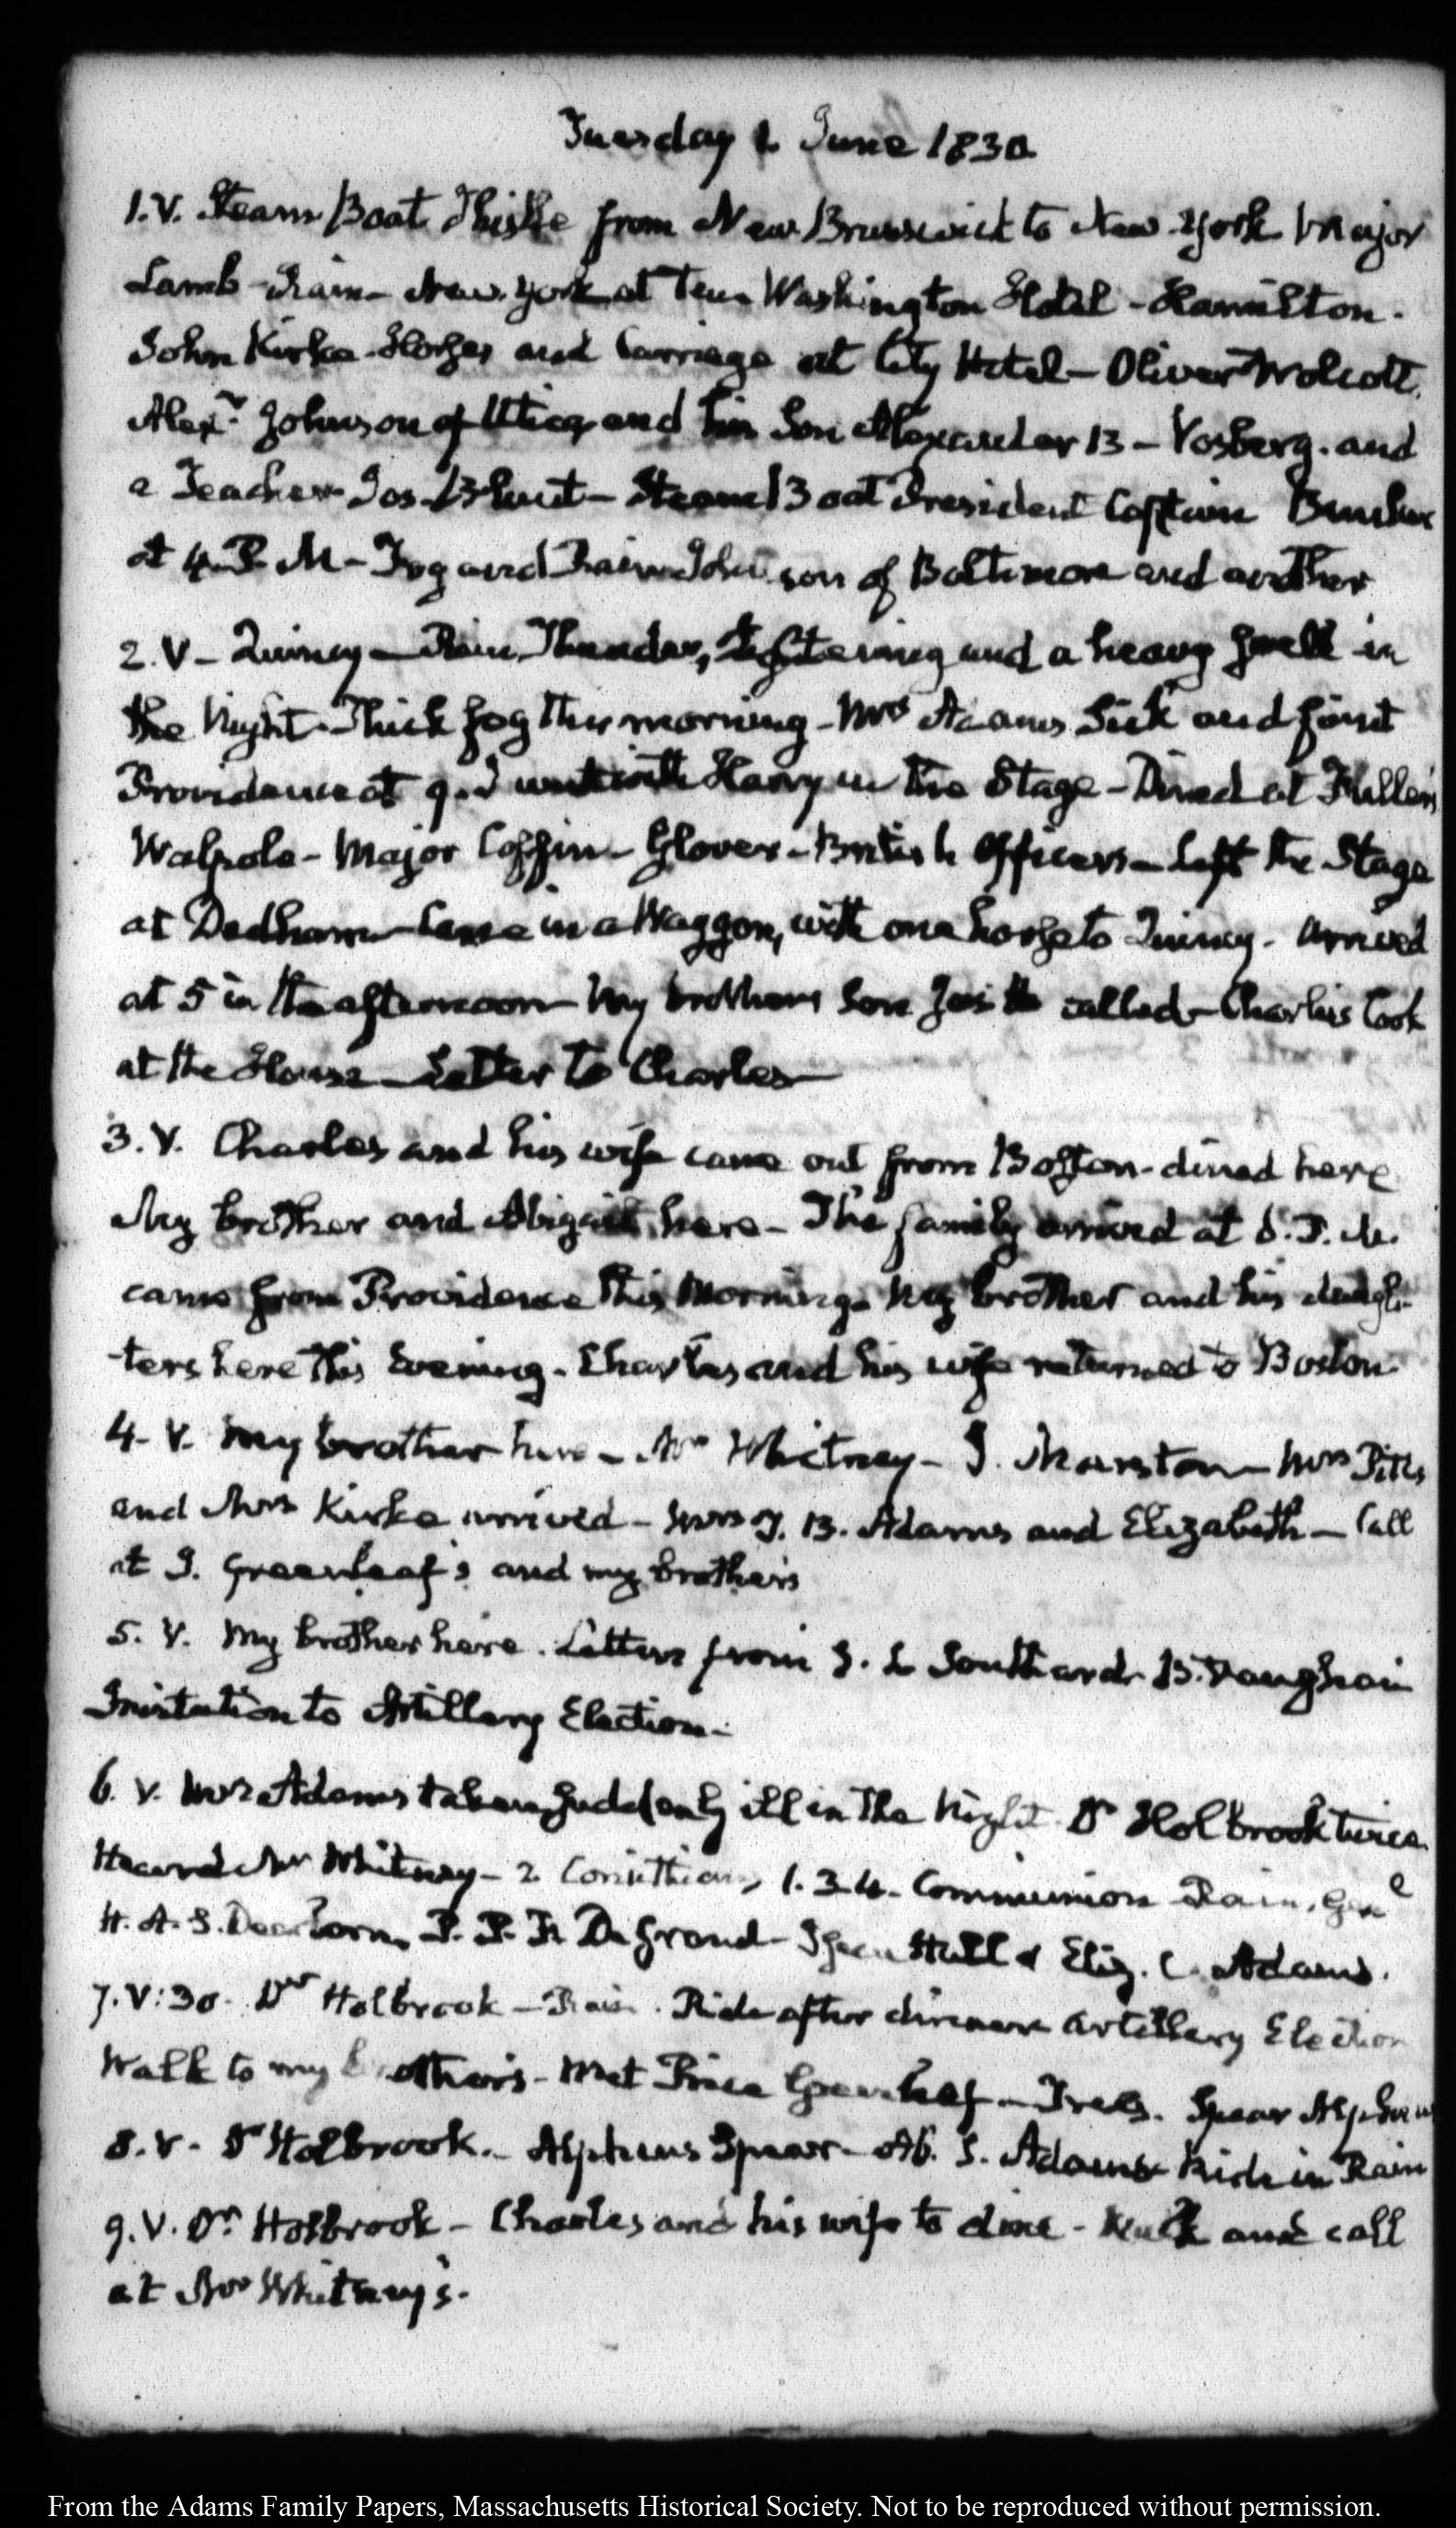 Tuesday 1. June 1830
1. V. Steam Boat Thistle from New Brunswick to New-York Major
Lamb - Rain - New-York at Ten Washington Hotel - Hamilton.
John Kirke - Horses and Carriage at City Hotel - Oliver Wolcott,
Alexr. Johnson of Utica and his Son Alexander 13 - Vosberg. and
a Teacher Steam Boat President Captain Bunker
at 4. P. M - Fog and Rain Johnson of Baltimore and another
2. V - Quincy - Rain, Thunder, Lightening and a heavy swell in
the Night - Thick fog this morning - Mrs Adams Sick and faint
Providence at 9. I went with Harry in the Stage - Dined at Fuller's
Walpole - Major Coffin - Glover - British Officers - Left the Stage
at Dedham - Came in a Waggon, with one horse to Quincy - arrived
at 5 in the afternoon - My brother's Son called - Charles took
at the House - Letter to Charles -
3. V. Charles and his wife came out from Boston - dined here
My brother and Abigail here - The family arrived at 6. P. M.
came from Providence this Morning - My brother and his daugh-
ters here this Evening - Charles and his wife returned to Boston
4. V. My brother here - Mr Whitney - J. Marston - Mrs Pitts
and Mrs Kirke arrived - Mrs T. B. Adams and Elizabeth - Call
at J. Greenleaf's and my brother's
5. V. My brother here. Letters from S. L Southard - B. Vaughan
Invitation to Artillery Election -
6. V. Mrs Adams taken suddenly ill in the Night Dr Holbrook twice.
Heard Mr Whitney - 2 Corinthians 1. 3. 4. Communion Rain, Genl
H. A. S. Dearborn, P. P. F. Degrand - Hull & Eliz. C. Adams.
7. V: 30. Dr Holbrook - Rain. Ride after dinner Artillery Election
Walk to my brother's - Met Price Greenleaf - Spear Alpheus
8. V. Dr Holbrook. - Alpheus Spear - Ab. S. Adams Ride in Rain
9. V. Dr Holbrook - Charles and his wife to dine - Walk and call
at Mr Whitney's.
From the Adams Family Papers, Massachusetts Historical Society. Not to be reproduced without permission.